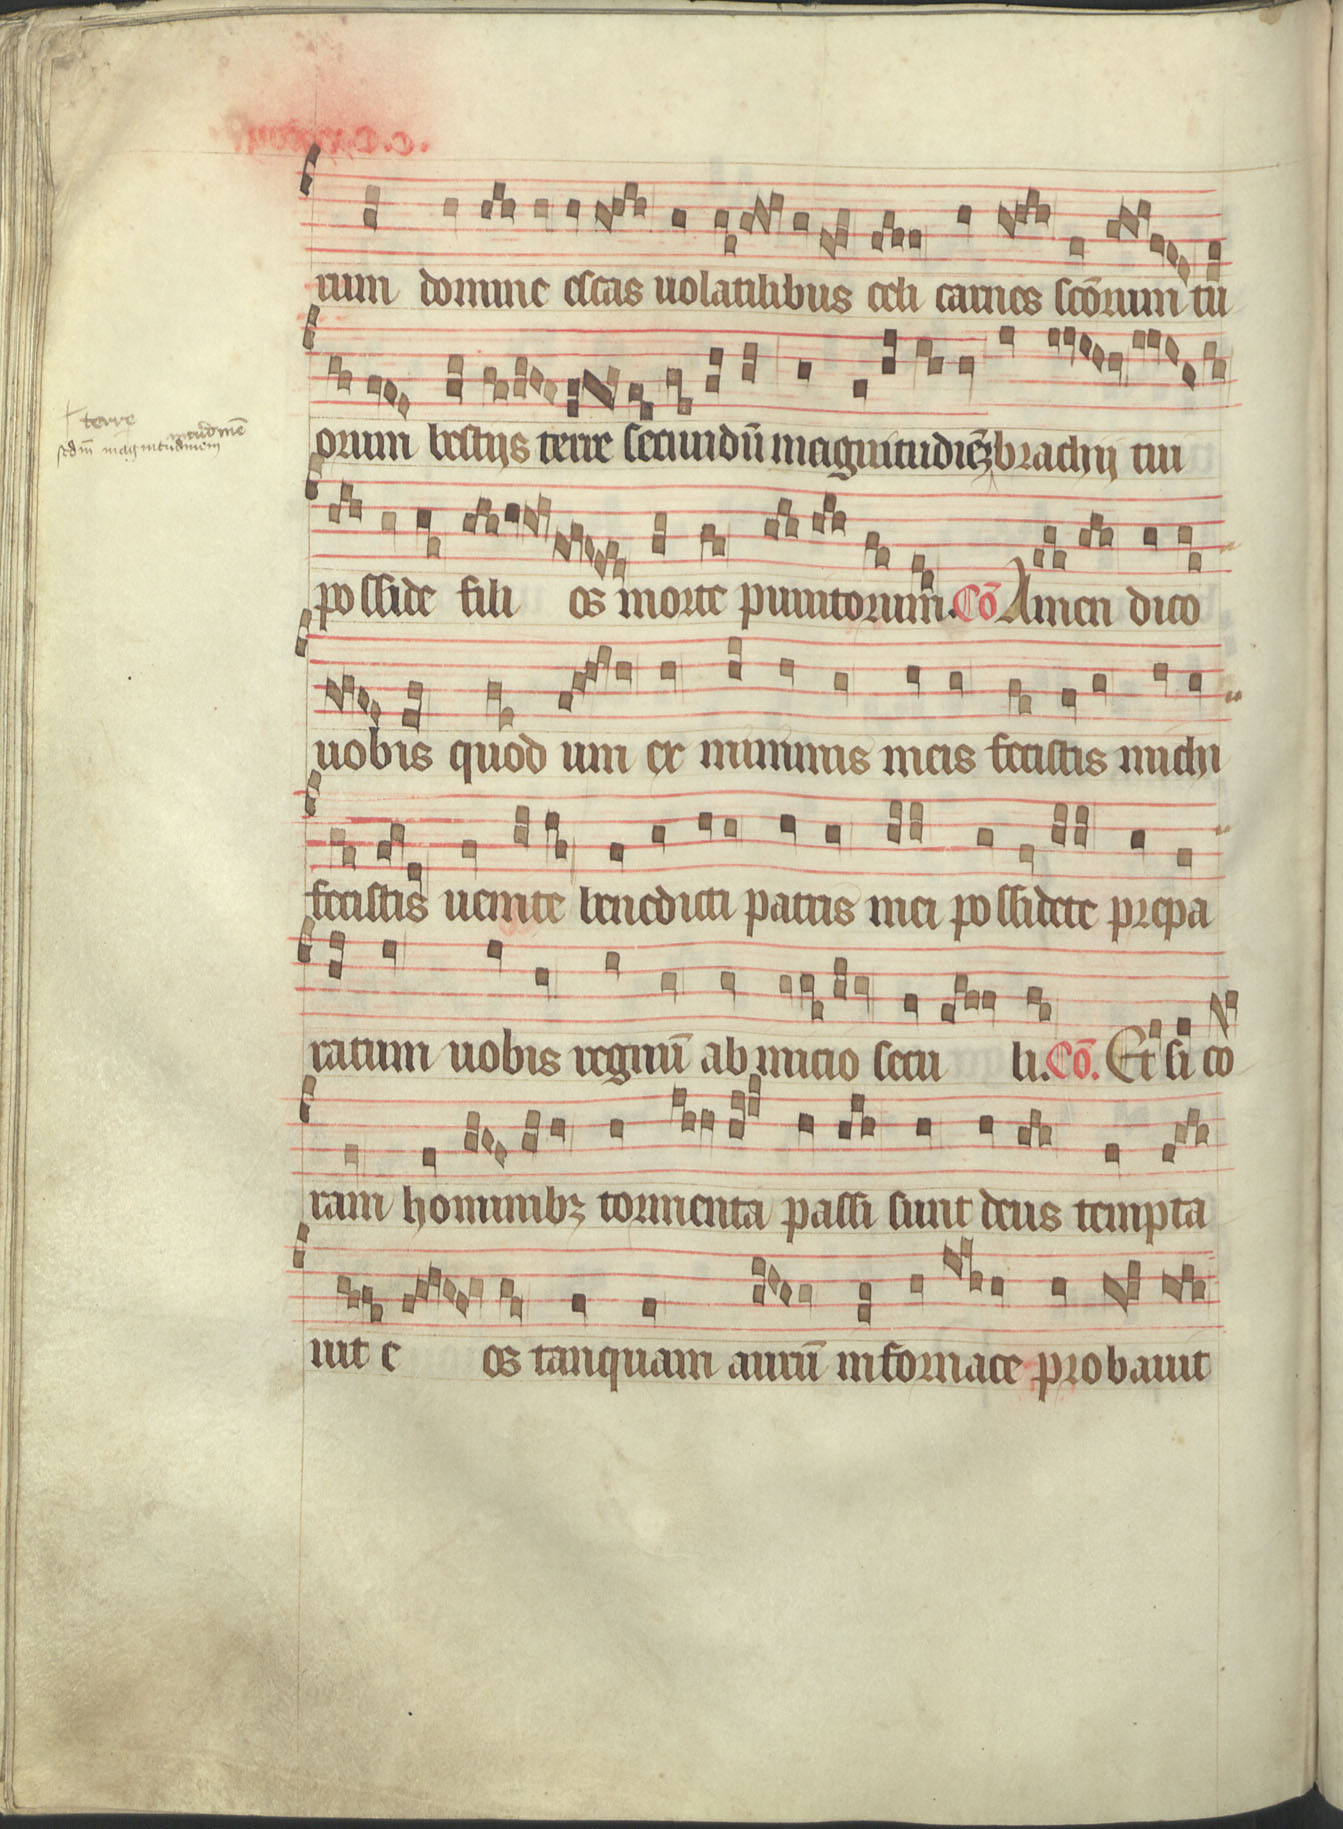 rum domine escas uolatilibus celi carnes scōrum tu
orum bestijs terre secundū magnitudinēz brachij tui
posside filios morte punitorum. Cō Amen dico
uobis quod uni ex minimis meis fecistis michi
fecistis uenite benedicti patris mei possidete prepa
ratum uobis regnū ab inicio seculi. Cō. Et si co
ram hominibz tormenta passi sunt deus tempta
uit eos tanquam aurū in fornace probauit
terre
scdm magnitudinem